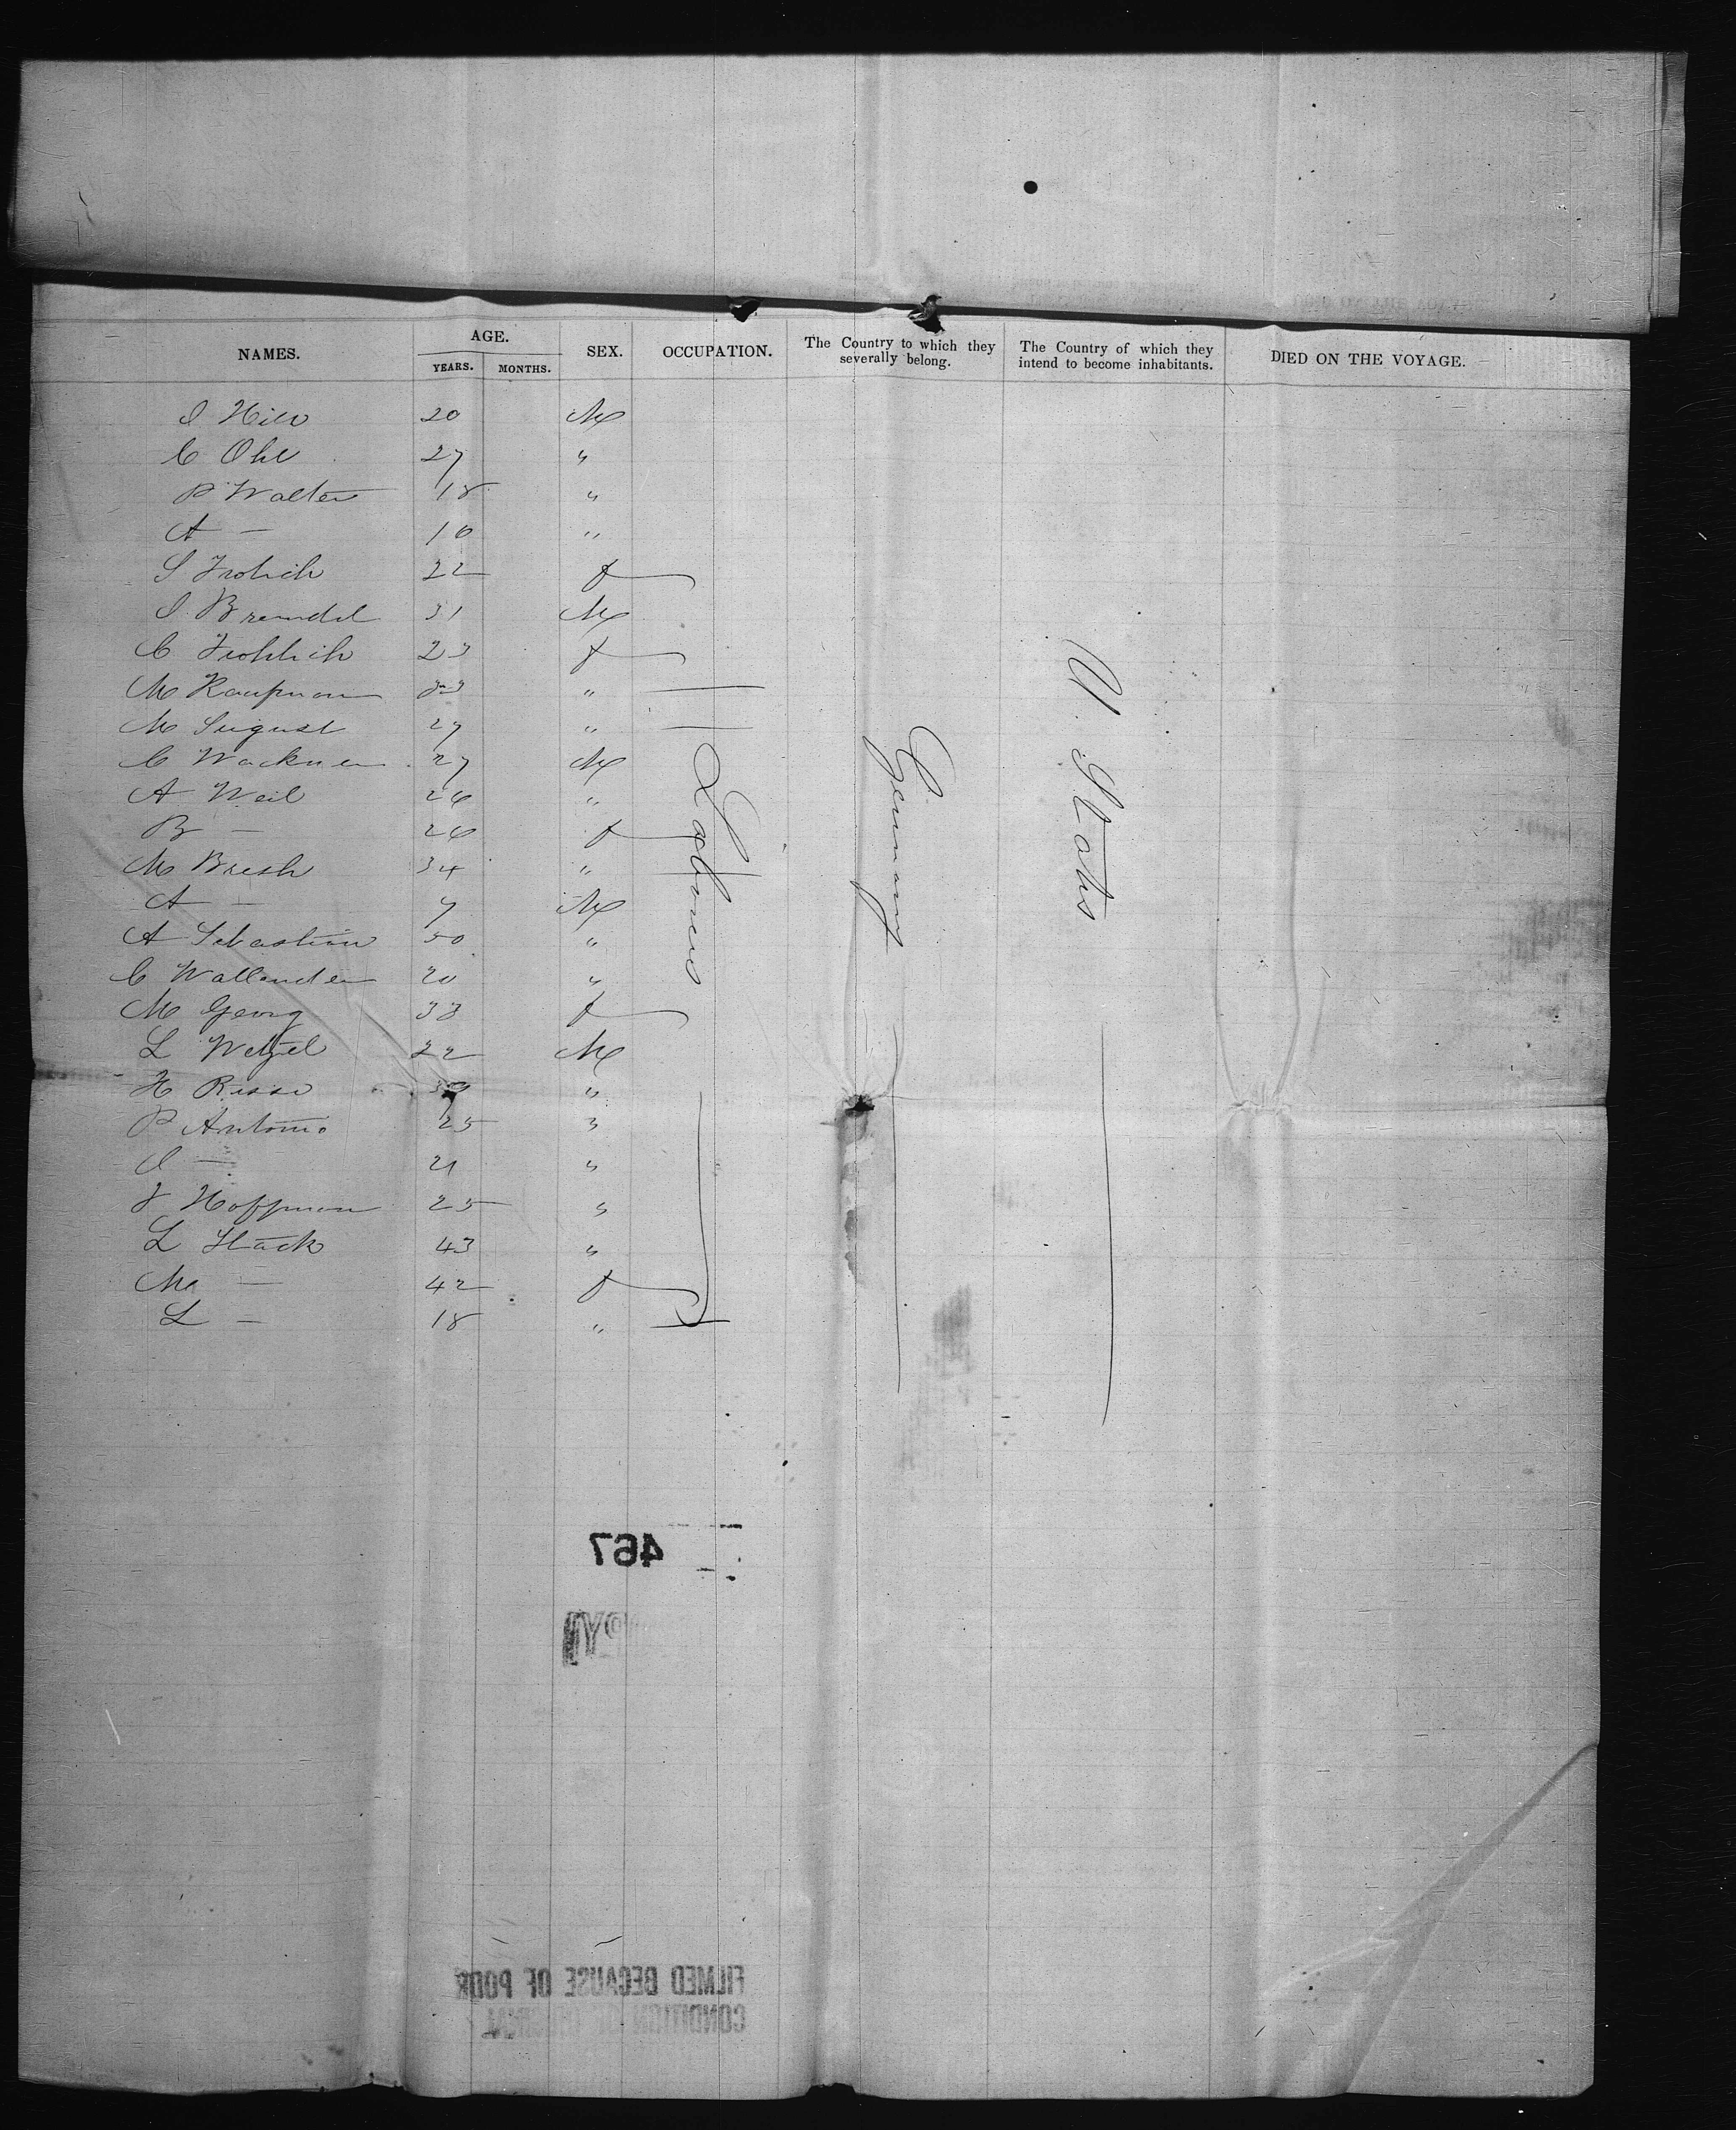 NAMES. AGE. SEX. OCCUPATION. The Country to which they severally belong. The Country of which they intend to become inhabitants. DIED ON THE VOYAGE.
YEARS. MONTHS.
20 M
C Ohl 27 "
P Walter 18 "
A — 10 "
S Frolich 22 f
31 M
C Frohlich 23 f
M Kaufman 33 "
M August 27 "
C Wackner 27 M
A Weil 26 "
B — 26 f
M Bresh 34 "
A — 7 M
A Sebastian 50 "
C Wallander 20 "
M Georg 33 f
L Wetzel 22 M
H "
P Antonio 25 "
J — 21 "
J Hoffman 25 "
L Stack 43 "
Ma — 42 f
L — 18 "
Laborers
Germany
U. States
467
COPY
FILMED BECAUSE OF POOR
CONDITION OF ORIGINAL